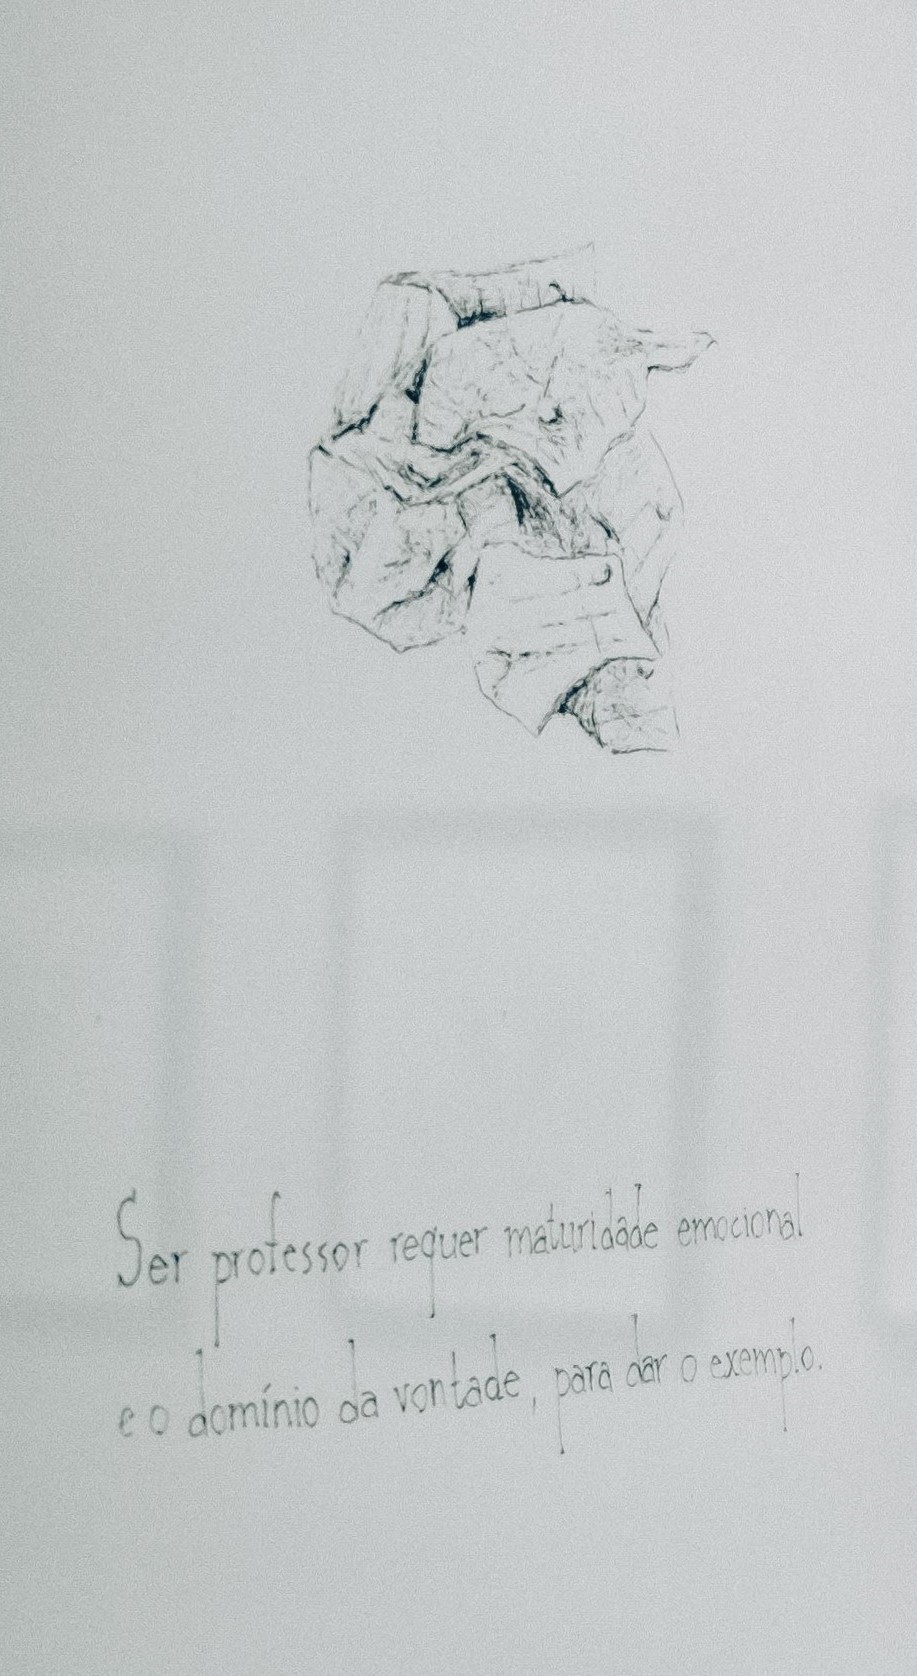 Ser professor requer maturidade emocional
e o domínio da vontade, para dar o exemplo.